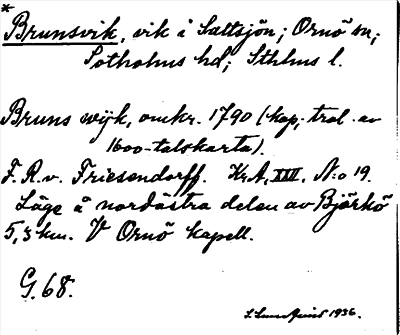 *
Brunsvik, vik i Saltsjön; Ornö sn;
Sotholms hd; Sthlms l.
Bruns wijk, omkr. 1790 (kop; trol. av
1600-talskarta).
F. R. v. Friesendorff. Kr.A, XIII. N:o 19.
Läge å nordöstra delen av Björkö
5,3 km. V Ornö kapell.
G. 68.
1936.